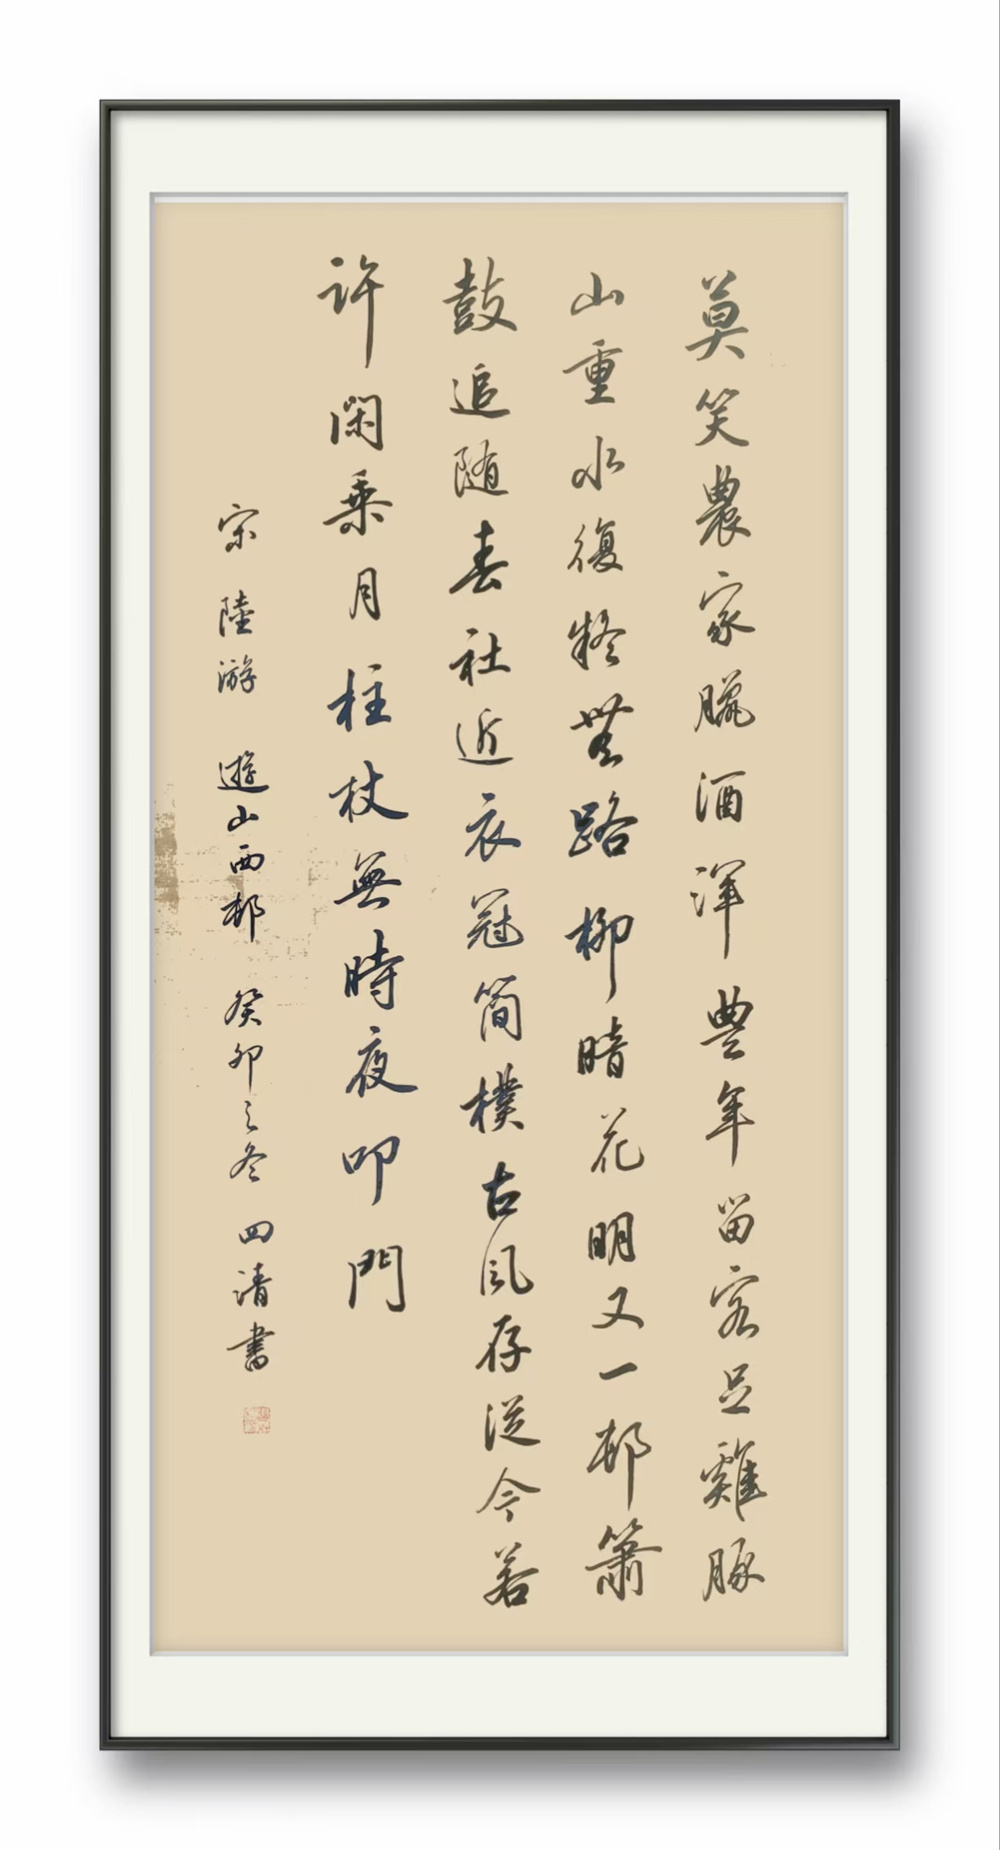 莫笑農家臘酒渾豊年留客足雞豚
山重水復疑無路柳暗花明又一邨簫
鼓追随春社近衣冠簡樸古風存従今若
許閑乗月柱杖無時夜叩門
宋 陸游 遊山西邨 癸卯之冬 四清書